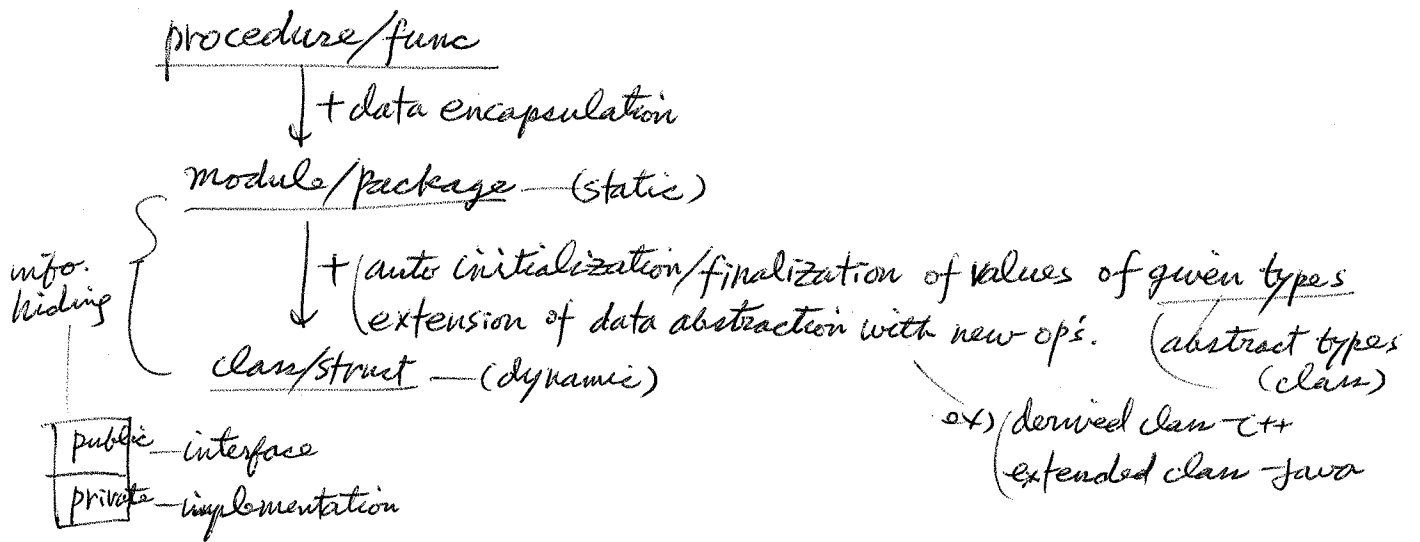 procedure/func
+ data encapsulation
module/package — (static)
info.
hiding
+ auto initialization/finalization of values of given types
extension of data abstraction with new op's.
(abstract types
(class)
class/struct — (dynamic)
ex) derived class - C++
extended class - Java
public — interface
private — implementation